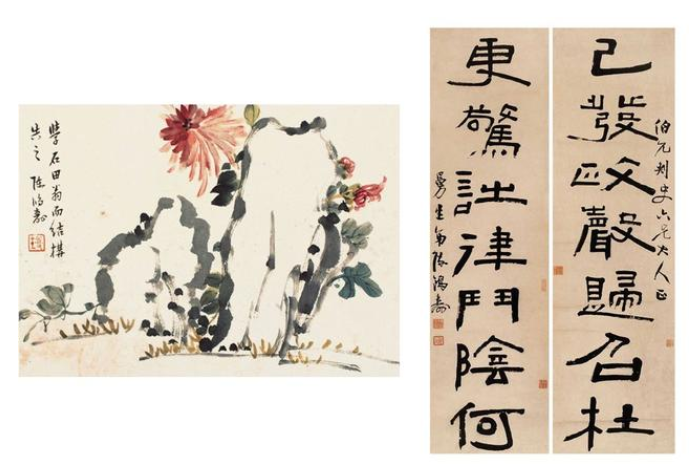 學石田翁而結構
失之 陳鴻壽
伯元刺史六兄大人正
已發政聲歸召杜
更驚詩律鬥陰何
曼生弟陳鴻壽